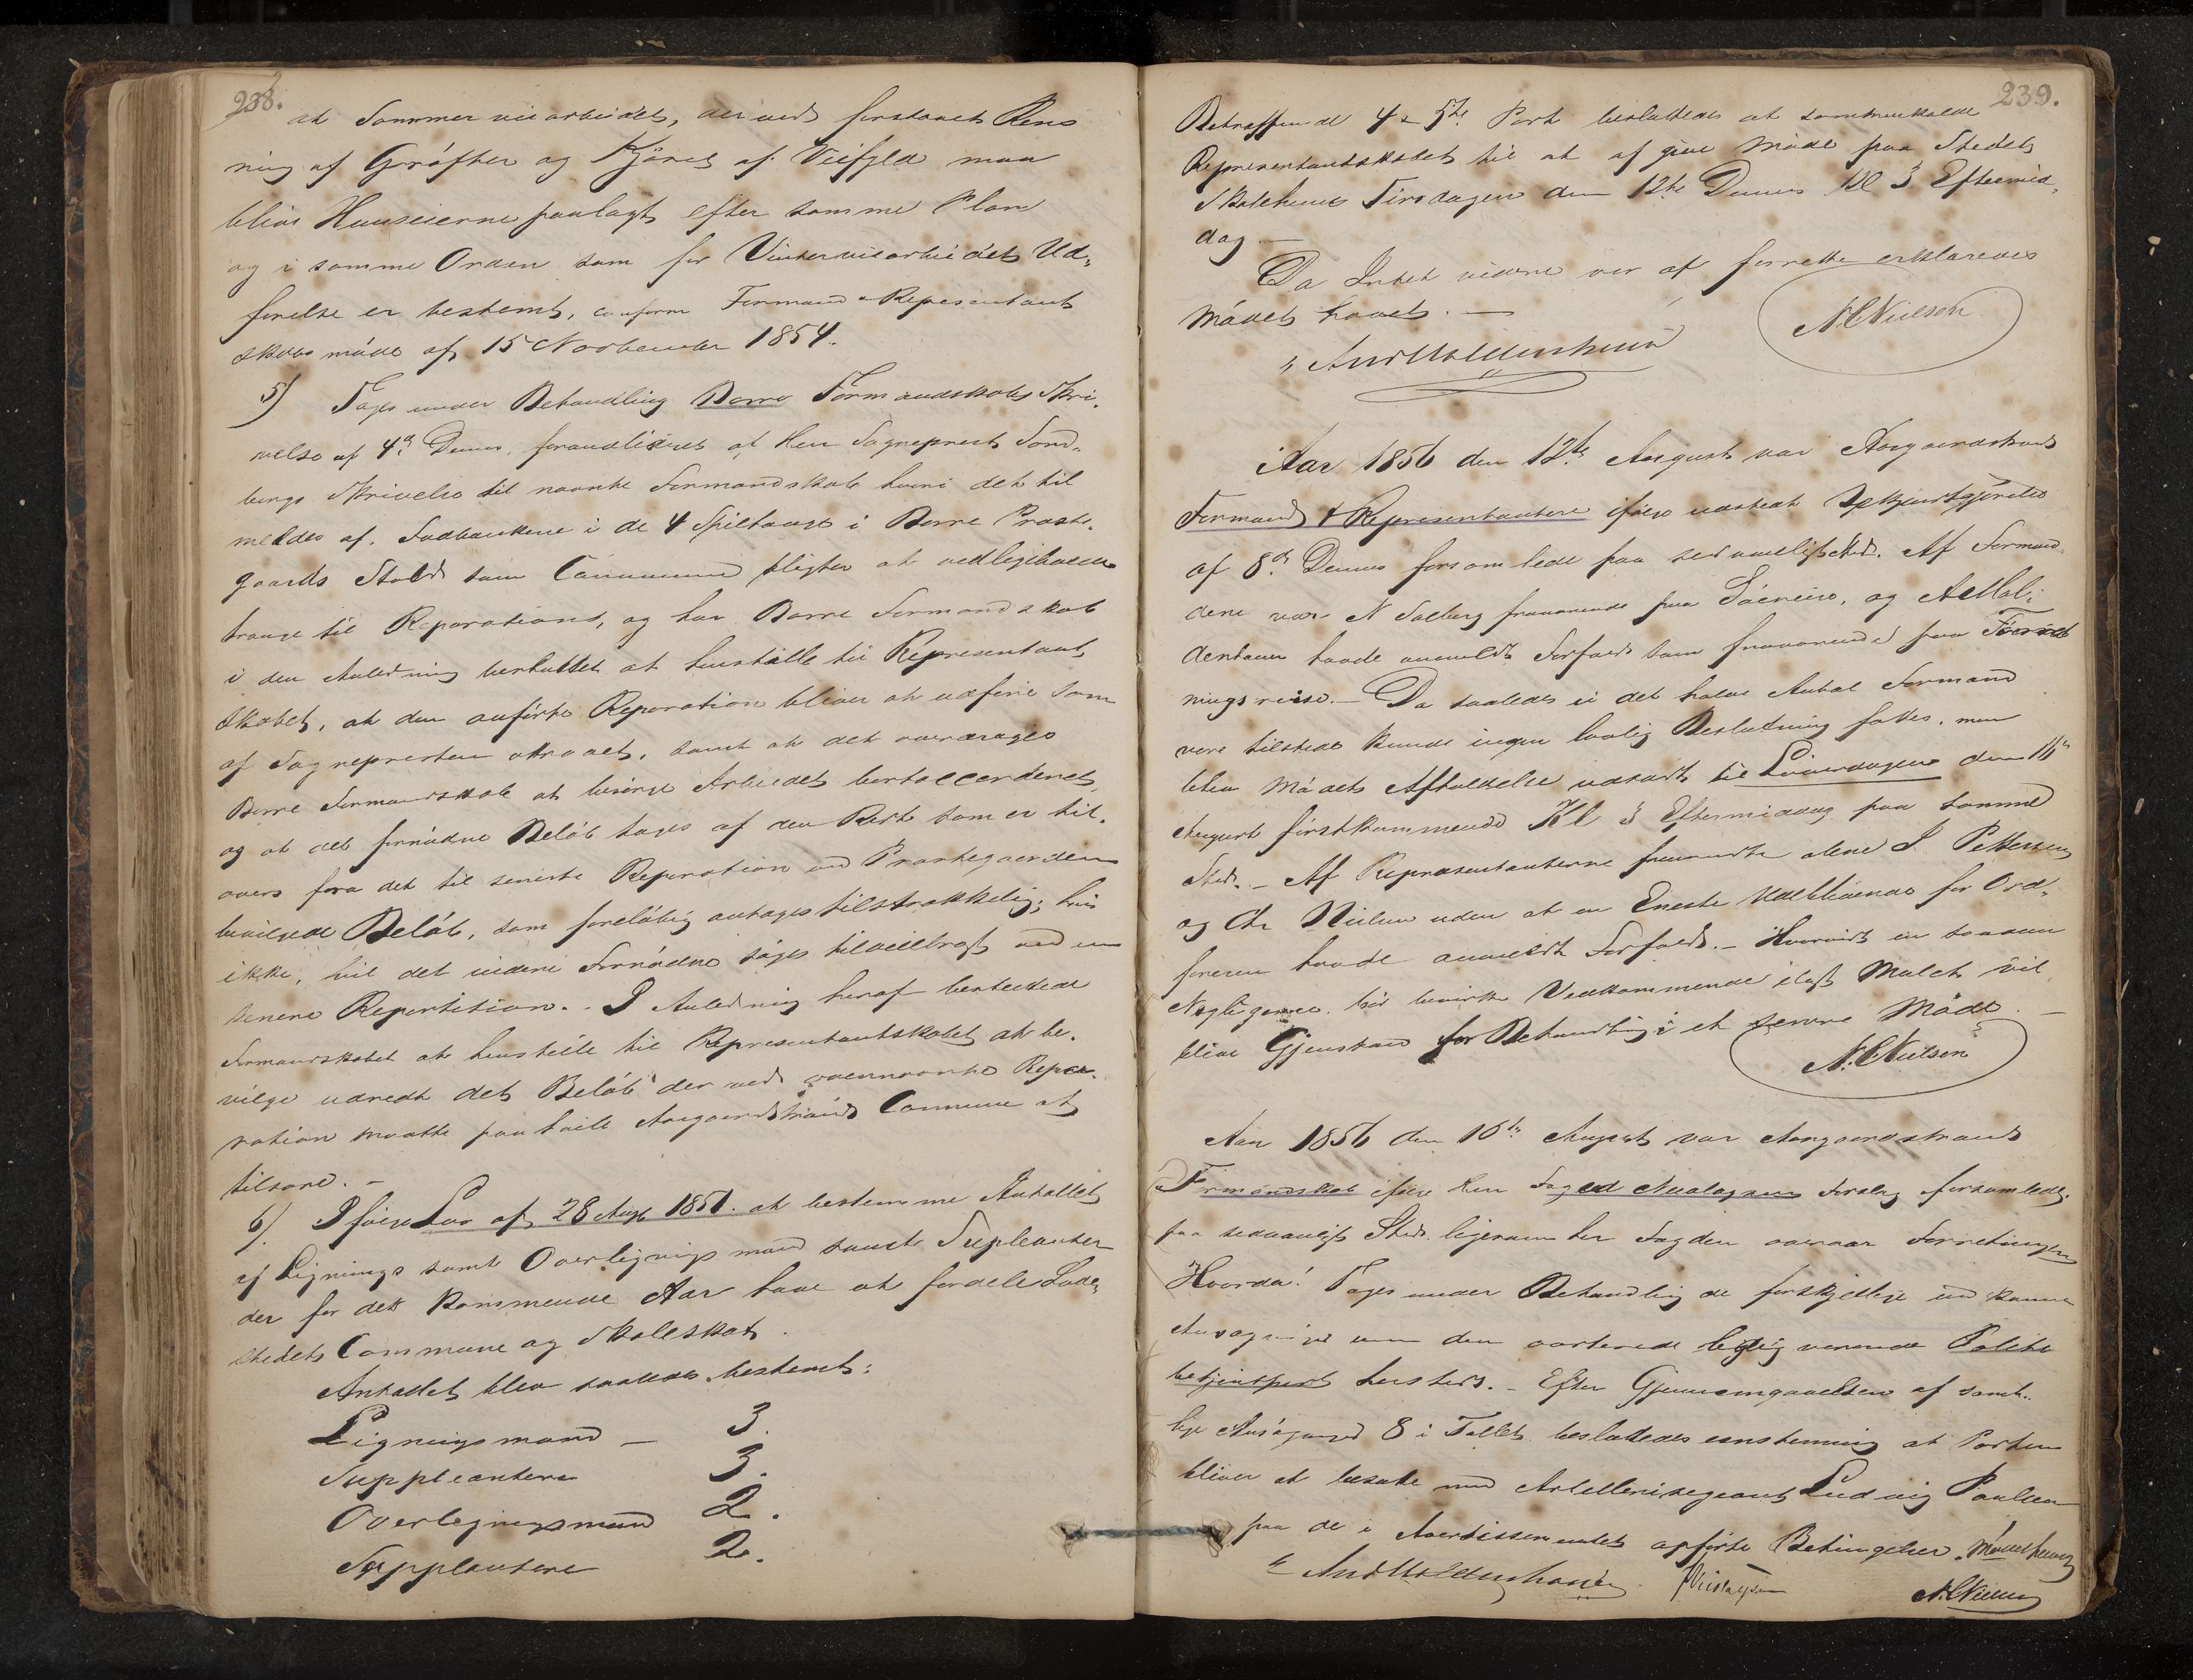 238.
at Sommerveiarbeidet, derved forstaaet Rens
ning af Gröfter og Kjörsel af Veifyld maa
blive Huuseierne paalagt efter samme Plan
og i samme Orden som for Vinterveiarbeidets Ud„
förelse er bestemt, conform Formand & Repræsentant
skabs möde af 15 November 1854.
5) Tages under Behandling Borre Formandskabs Skri„
velse af 4de Dennes, foranlediget af Herr Sogneprest
bergs Skrivelse til nævnte Formandskab hvori det til
meldes at i de 4 Spiltouge i Borre Præste„
gaards Stald som Communen pligter at vedligeholde
trænge til Reparations, og har Borre Formandskab
i den Anledning besluttet at henstille til Representant
skabet, at den anförte Reparation bliver at udföre som
af Sognepresten attraaet, samt at det overdrages
Borre Formandskab at besörge Arbeidet bortaccorderet,
og at det fornödne Belöb tages af den Rest som er til„
overs fra det til seneste Reparation ved Præstegaarden
bevilgede Belöb, som forelöbig antages tilstrækkelig; hvis
ikke, vil det videre Fornödne söges tilveiebragt ved en
senere Repartition. - I Anledning heraf besluttede
Formandskabet at henstille til Representantskabet at be„
vilge udredt det Belöb der ved ovennævnte Repa„
ration maatte paahvile Aasgaardstrands Commune at
tilsvare. -
6). Ifölge Lov af 28 Aug 1851. at bestemme Antallet
af Lignings samt Overlignings mænd samt Supleanter
der for det kommende Aar have at fordele Lade„
stedets Commune og Skoleskat.
Antallet blev saaledes bestemt:
Ligningsmænd — 3.
Suppleantere 3.
Overligningsmænd 2.
Suppleantere 2.
239.
Betreffende 4 & 5te Post besluttedes at sammenkalde
Representantskabet til at afgive Möde paa Stedets
Skolehuus Tirsdagen den 12te Dennes Kl 3 Eftermid„
dag —
Da Intet videre var at forrette erklæredes
Mödet hævet. —
N.C Nielson
And Moldenhauer
Aar 1856 den 12te August var Aasgaardstrands
Formænd & Representantere ifölge udstedt Bekjendtgjörelse
af 8de Dennes forsamlede paa sedvanligt Sted. Af Formæn
dene var N Solberg fraværende paa Söereise, og A Mol„
denhauer havde anmeldt Forfald som fraværende paa
ningsreise. — Da saaledes ei det halve Antal Formænd
vare tilstede kunde ingen lovlig Beslutning fattes, men
blev Mödets Afholdelse udsadt til Löverdagen den 16de
August förstkommende Kl 3 Eftermiddag paa samme
Sted. — Af Repræsentanterne fremmödte alene J. Pettersen
og Chr Nielsen uden at en Eneste Udeblivende for Ord„
föreren havde anmeldt Forfald. — Hvorvidt en saadan
Negligence bör bevirke Vedkommende ilagt Mulct vil
blive Gjenstand for Behandling i et senere Möde. —
N.C Nielsen
Aar 1856 den 16de August var Aasgaardstrands
Formandskab ifölge Herr Foged Forslag forsamlede
paa sedvanligt Sted ligesom Herr Fogden overvar Forretningen
Hvorda! Tages under Behandling de forskjellige indkomne
Ansögninger om den værende ledig værende Politi
betjentpost hersteds. — Efter Gjennemgaaelsen af samt„
lige Ansögninger 8 i Tallet besluttedes eenstemmig at Posten
bliver at besætte med Artillerisergeant Ludvig Paulsen
paa de i Avertissementet opförte Betingelser. Mödet hævet
And Moldenhauer N.C Nielsen